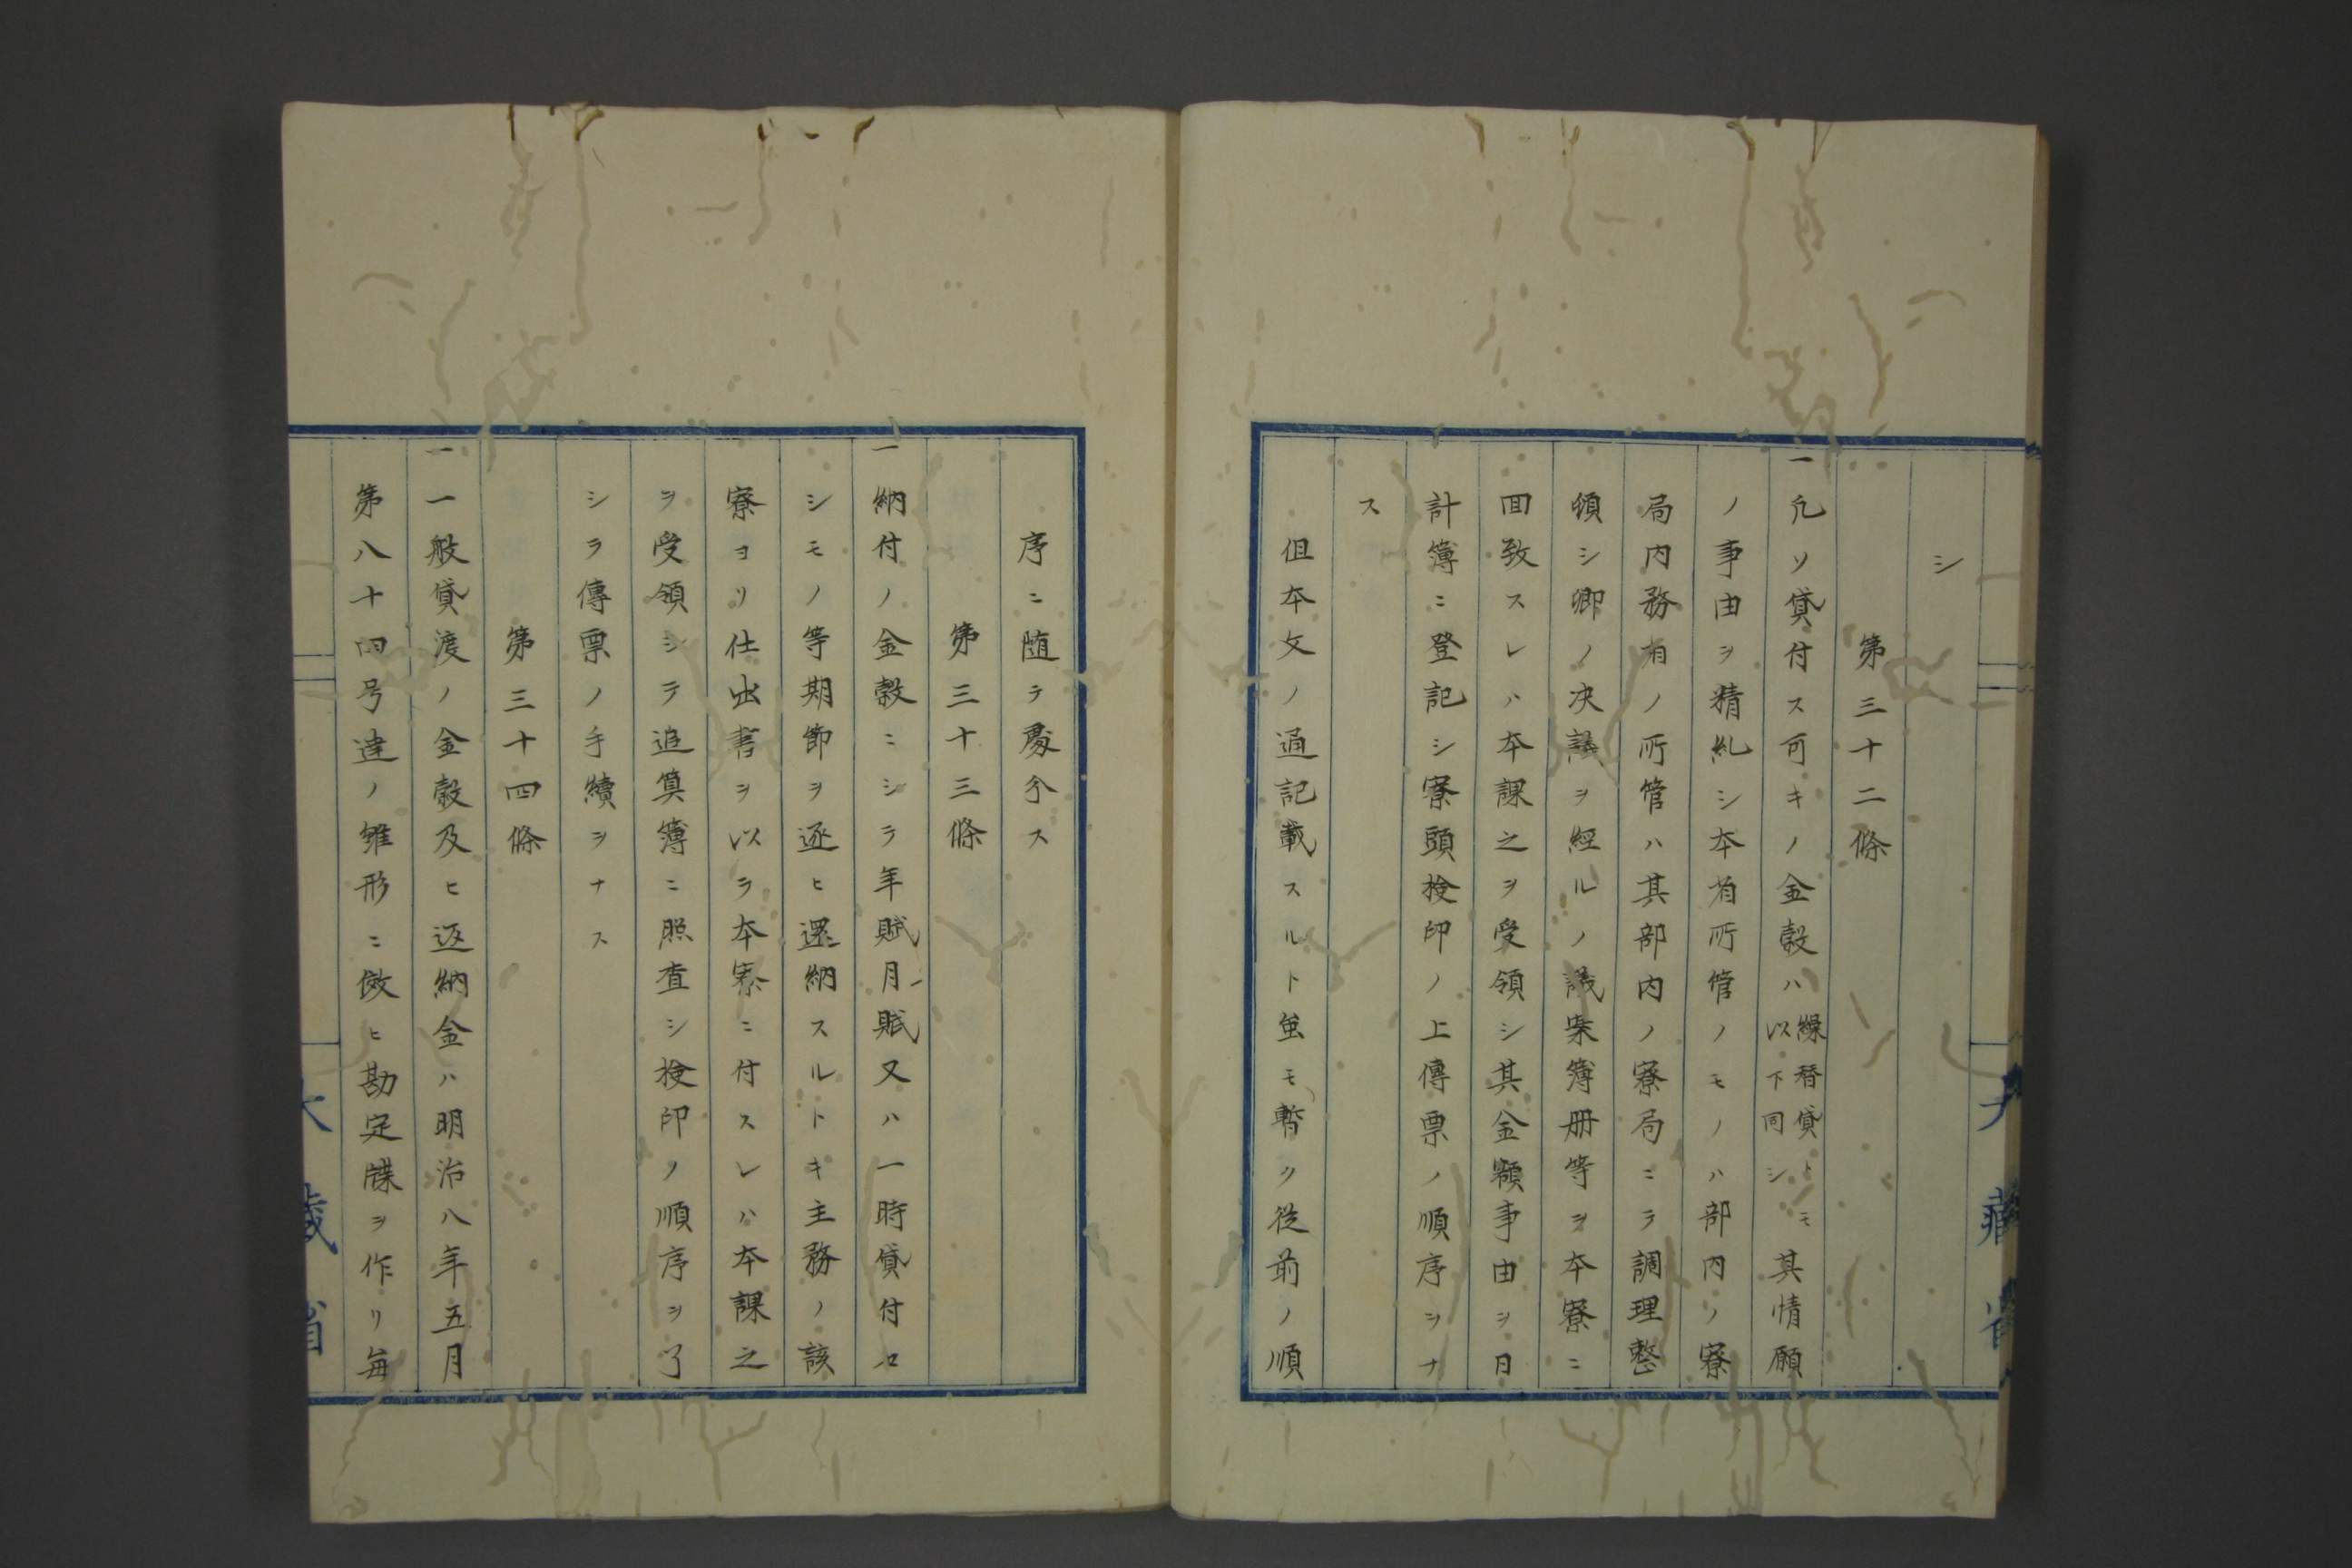 シ
第三十二條
一凡ソ貸付ス可キノ金穀ハ繰替貸トモ以下同シ其情願
ノ事由ヲ精糺シ本省所管ノモノハ部内ノ寮
局内務省ノ所管ハ其部内ノ寮局ニテ調理整
頓シ卿ノ决議ヲ経ルノ議案簿册等ヲ本寮ニ
回致スレハ本課之ヲ受領シ其金額事由ヲ日
計簿ニ登記シ寮頭検印ノ上傳票ノ順序ヲナ
ス
但本文ノ通記載スルト虽モ暫ク従前ノ順
序ニ随テ處分ス
第三十三條
一納付ノ金穀ニシテ年賦月賦又ハ一時貸付セ
シモノ等期節ヲ逐ヒ還納スルトキ主務ノ該
寮ヨリ仕出書ヲ以テ本寮ニ付スレハ本課之
ヲ受領シテ追算簿ニ照査シ検印ノ順序ヲ了
シテ傳票ノ手續ヲナス
第三十四條
一一般貸渡ノ金穀及ヒ返納金ハ明治八年五月
第八十四号達ノ雛形ニ倣ヒ勘定牒ヲ作リ毎
大藏省